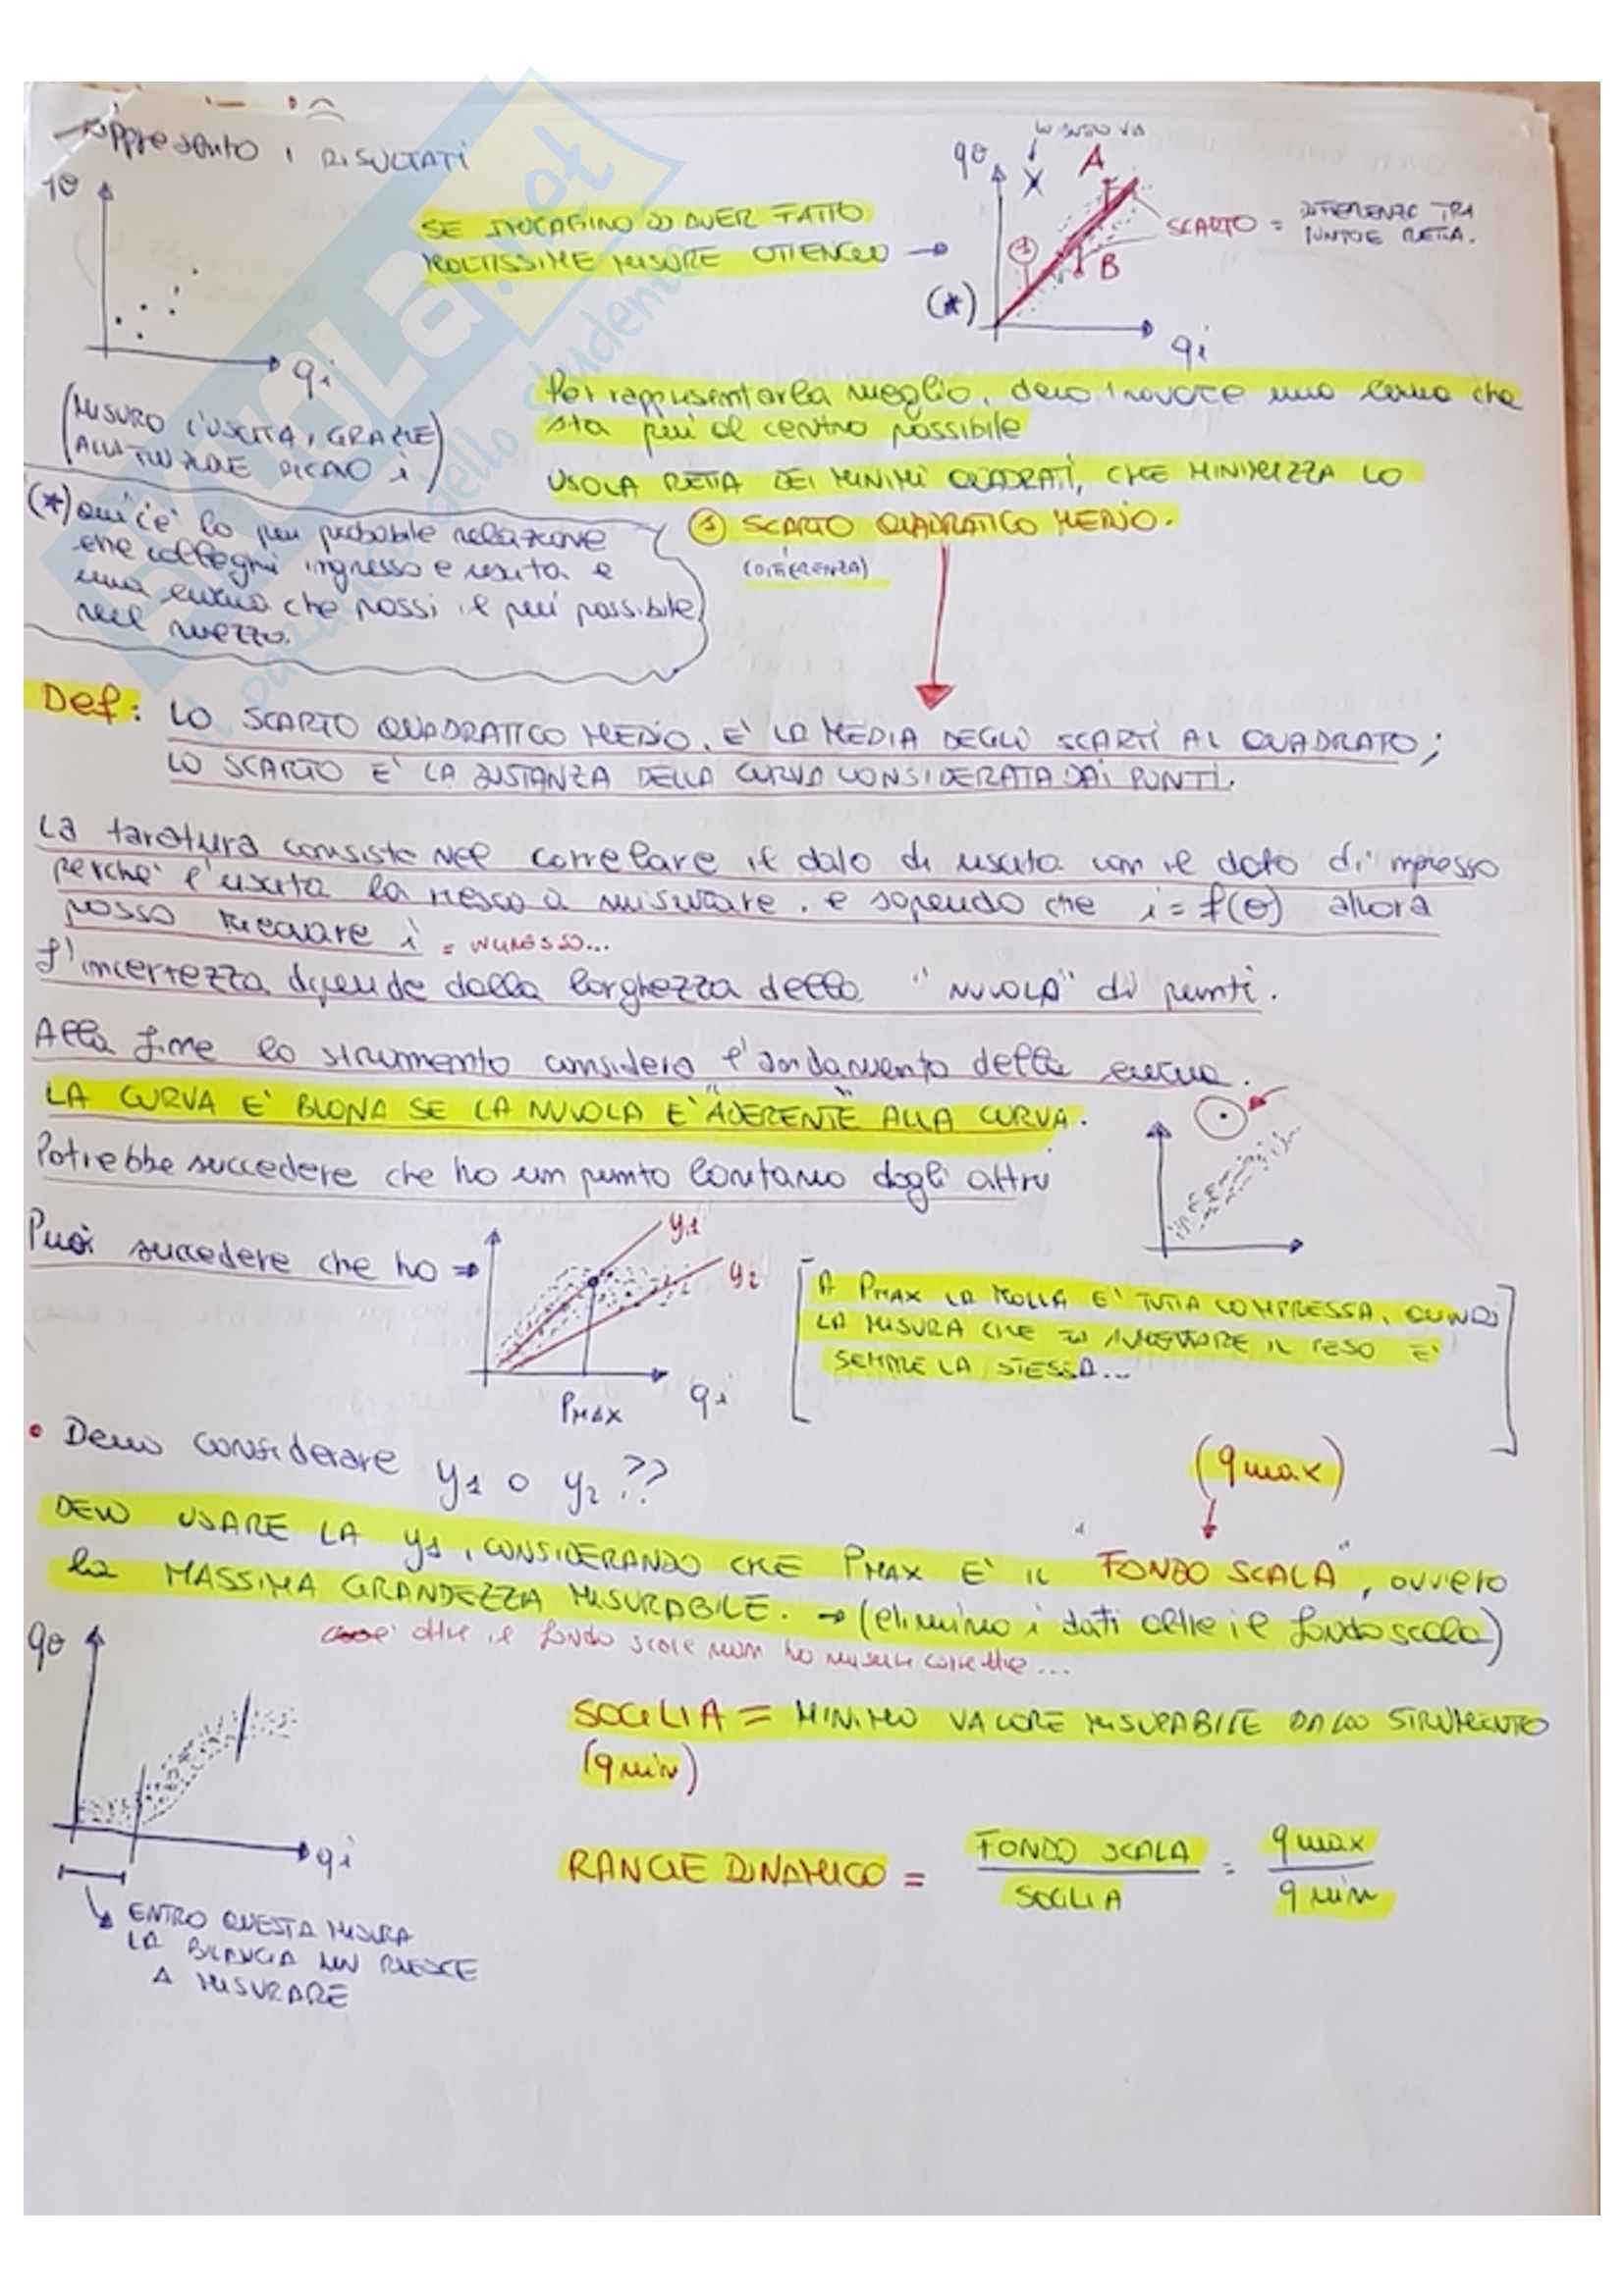 Rappresento i RISULTATI
qθ
qi
SE IMMAGINO DI AVER FATTO
MOLTISSIME MISURE OTTENGO →
qθ
LO BUTTO VIA
X
A
B
1
(*)
qi
SCARTO = DIFFERENZA TRA
PUNTO E RETTA.
(MISURO L'USCITA, GRAZIE
ALLA FUNZIONE RICAVO i)
Per rappresentarla meglio, devo trovare una curva che
sta più al centro possibile
USO LA RETTA DEI MINIMI QUADRATI, CHE MINIMIZZA LO
① SCARTO QUADRATICO MEDIO.
(DIFFERENZA)
(*) qui c'è la più probabile relazione
che collegni ingresso e uscita e
una curva che passi il più possibile
nel mezzo.
Def: LO SCARTO QUADRATICO MEDIO, E' LA MEDIA DEGLI SCARTI AL QUADRATO;
LO SCARTO E' LA DISTANZA DELLA CURVA CONSIDERATA DAI PUNTI.
La taratura consiste nel correlare il dato di uscita con il dato di ingresso
perche' l'uscita la riesco a misurare, e sapendo che i = f(θ) allora
posso ricavare i = INGRESSO...
L'incertezza dipende dalla larghezza della "NUVOLA" di punti.
Alla fine lo strumento considera l'andamento della curva.
LA CURVA E' BUONA SE LA NUVOLA E' "ADERENTE" ALLA CURVA.
Potrebbe succedere che ho un punto lontano dagli altri
Può succedere che ho ⇒
y1
y2
PMAX
qi
[A PMAX LA MOLLA E' TUTTA COMPRESSA, QUINDI
LA MISURA CHE AUMENTARE IL PESO E'
SEMPRE LA STESSA...]
• Devo considerare y1 o y2??
(qmax)
DEVO USARE LA y1, CONSIDERANDO CHE PMAX E' IL "FONDO SCALA", ovvero
la MASSIMA GRANDEZZA MISURABILE. → (elimino i dati oltre il fondo scala)
oltre il fondo scala non ho misure corrette...
qθ
qi
SOGLIA = MINIMO VALORE MISURABILE DALLO STRUMENTO
(qmin)
RANGE DINAMICO = FONDO SCALA / SOGLIA = qmax / qmin
ENTRO QUESTA MISURA
LA BILANCIA NON RIESCE
A MISURARE